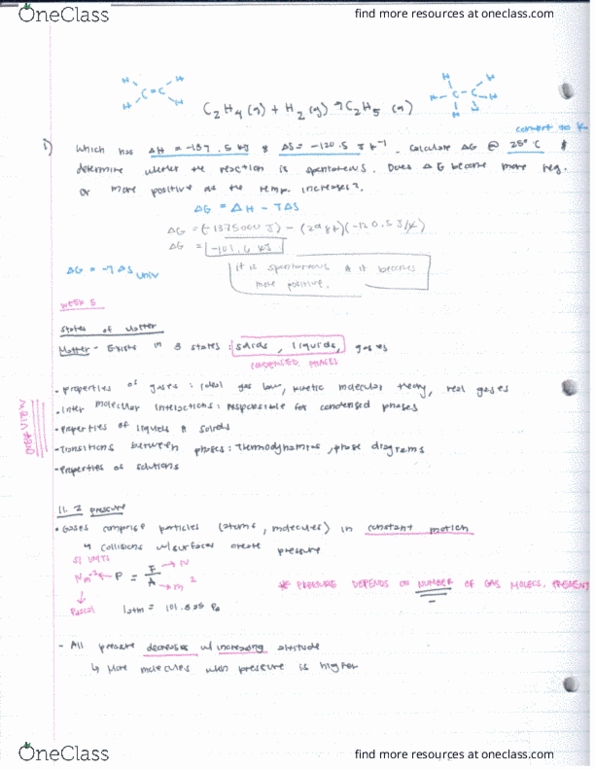 OneClass
find more resources at oneclass.com
C2H4 (g) + H2 (g) → C2H5 (g)
convert to K
1) Which has ΔH = -137.5 kJ & ΔS = -120.5 J K⁻¹. Calculate ΔG @ 25° C &
determine wheter the reaction is spontaneous. Does ΔG become more neg.
or more positive as the temp. increases?
ΔG = ΔH - TΔS
ΔG = (-137500 J) - (298K)(-120.5 J/K)
ΔG = -101.6 kJ
ΔG = -TΔS univ
it is spontaneous & it becomes
more positive.
WEEK 5
States of Matter
Matter - Exists in 3 states: solids, liquids, gases
CONDENSED PHASES
- properties of gases: ideal gas law, kinetic molecular theory, real gases
- Inter molecular interactions: responsible for condensed phases
- Properties of liquids & solids
- Transitions between phases: Thermodynamics, phase diagrams
- Properties of solutions
11.2 pressure
• Gases comprise particles (atoms, molecules) in constant motion
↳ collisions w/ surfaces create pressure
SI UNITS
Nm⁻² ← P = F/A → N → m²
Pascal
1 atm = 101.325 Pa
* PRESSURE DEPENDS ON NUMBER OF GAS MOLECS. PRESENT
- All pressure decreases w/ increasing altitude
↳ More molecules when pressure is higher
OneClass
find more resources at oneclass.com